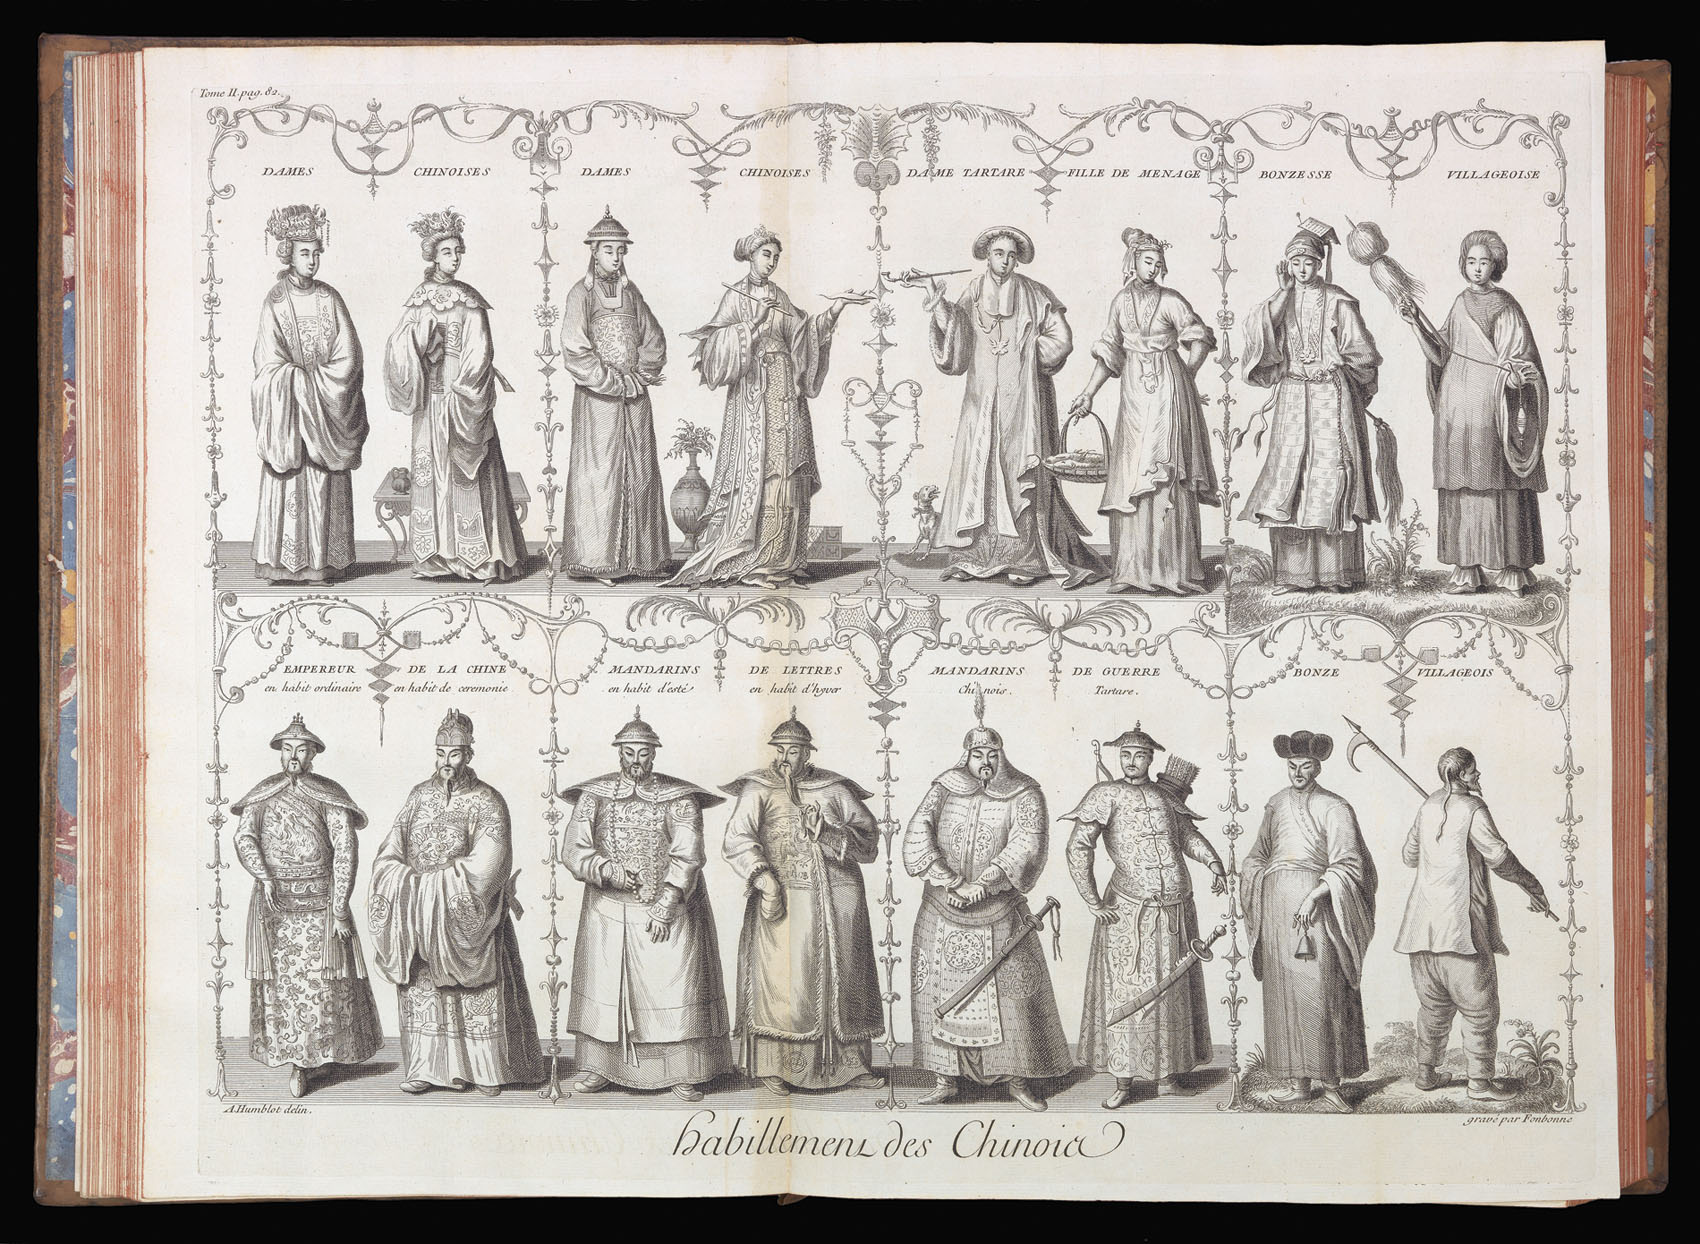 Tome II. pag. 82.
DAMES CHINOISES DAMES CHINOISES DAME TARTARE FILLE DE MENAGE BONZESSE VILLAGEOISE
EMPEREUR DE LA CHINE MANDARINS DE LETTRES MANDARINS DE GUERRE BONZE VILLAGEOIS
en habit ordinaire en habit de ceremonie en habit d'esté en habit d'hyver Chinois. Tartare.
A. Humblot delin. gravé par Fonbonne
habillement des Chinois